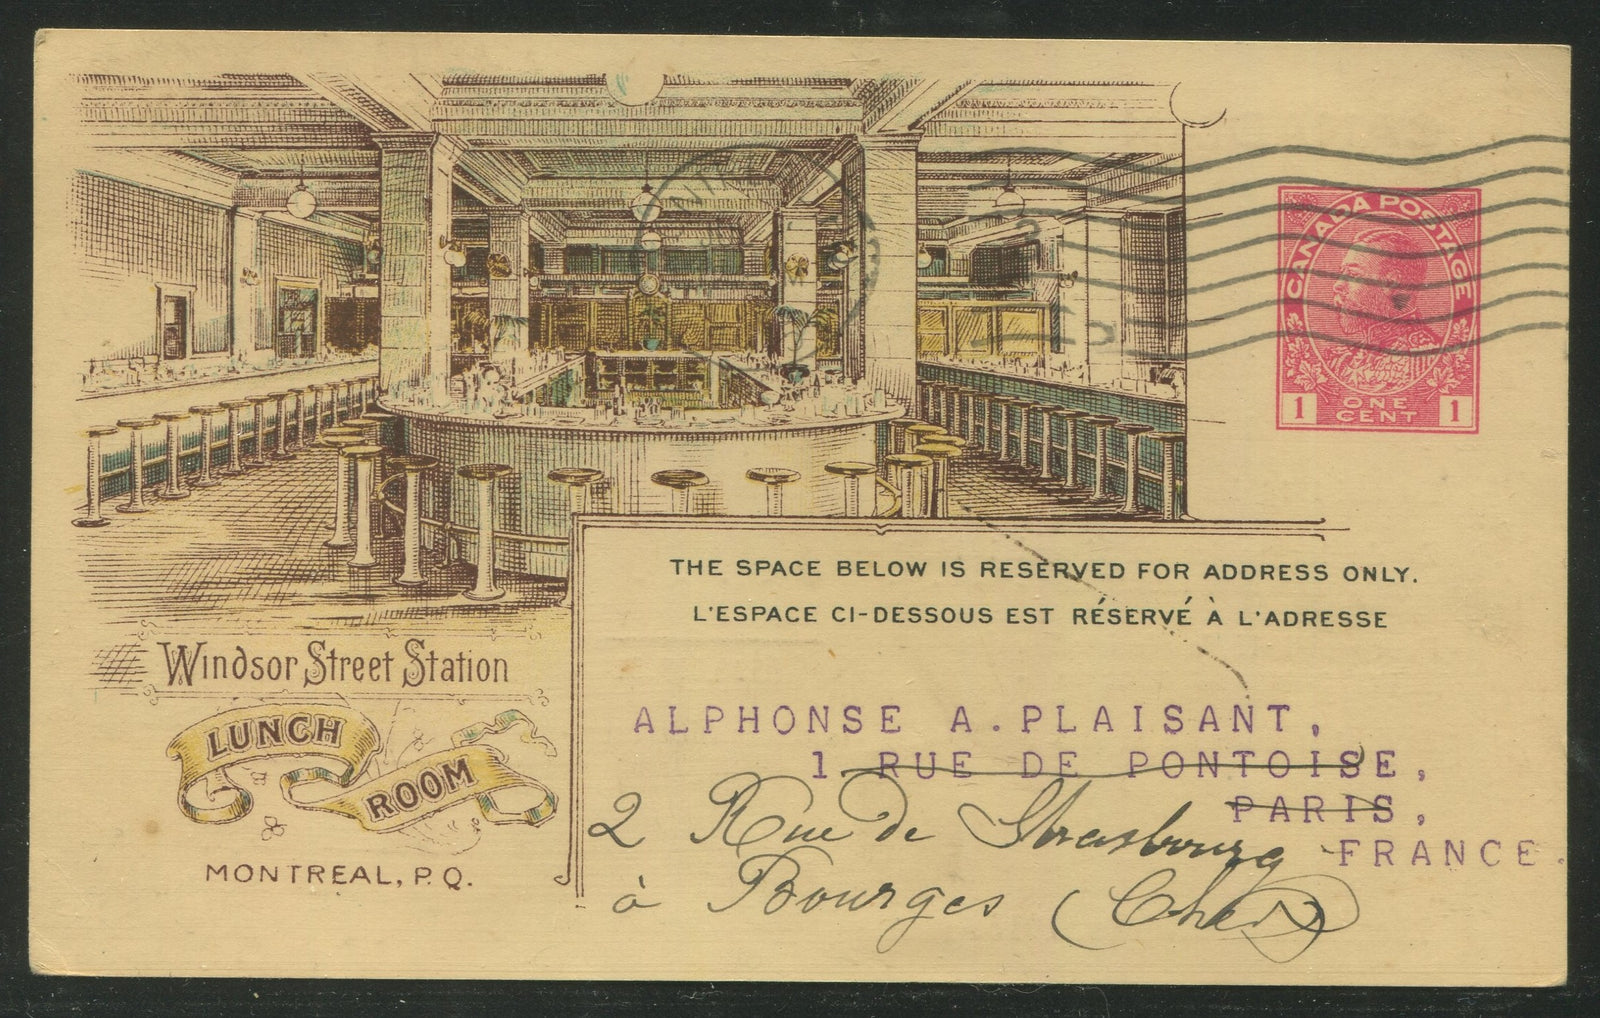 CANADA POSTAGE
1 ONE CENT 1
THE SPACE BELOW IS RESERVED FOR ADDRESS ONLY.
L'ESPACE CI-DESSOUS EST RÉSERVÉ À L'ADRESSE
Windsor Street Station
LUNCH
ROOM
MONTREAL, P.Q.
ALPHONSE A. PLAISANT,
1 RUE DE PONTOISE,
PARIS,
2 Rue de Strasbourg
FRANCE.
à Bourges (Cher)